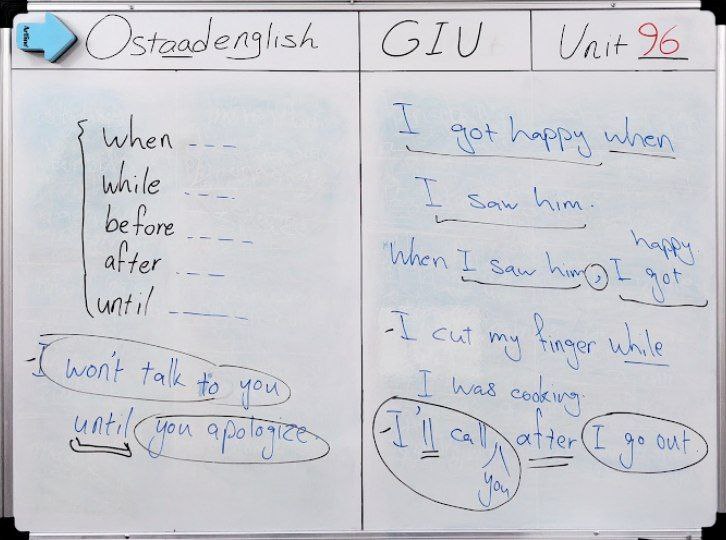 Ostaadenglish
GIU
Unit 96
when
while
before
after
until
-I won't talk to you
until you apologize.
I got happy when
I saw him.
When I saw him, I got happy.
-I cut my finger while
I was cooking.
-I'll call you after I go out.